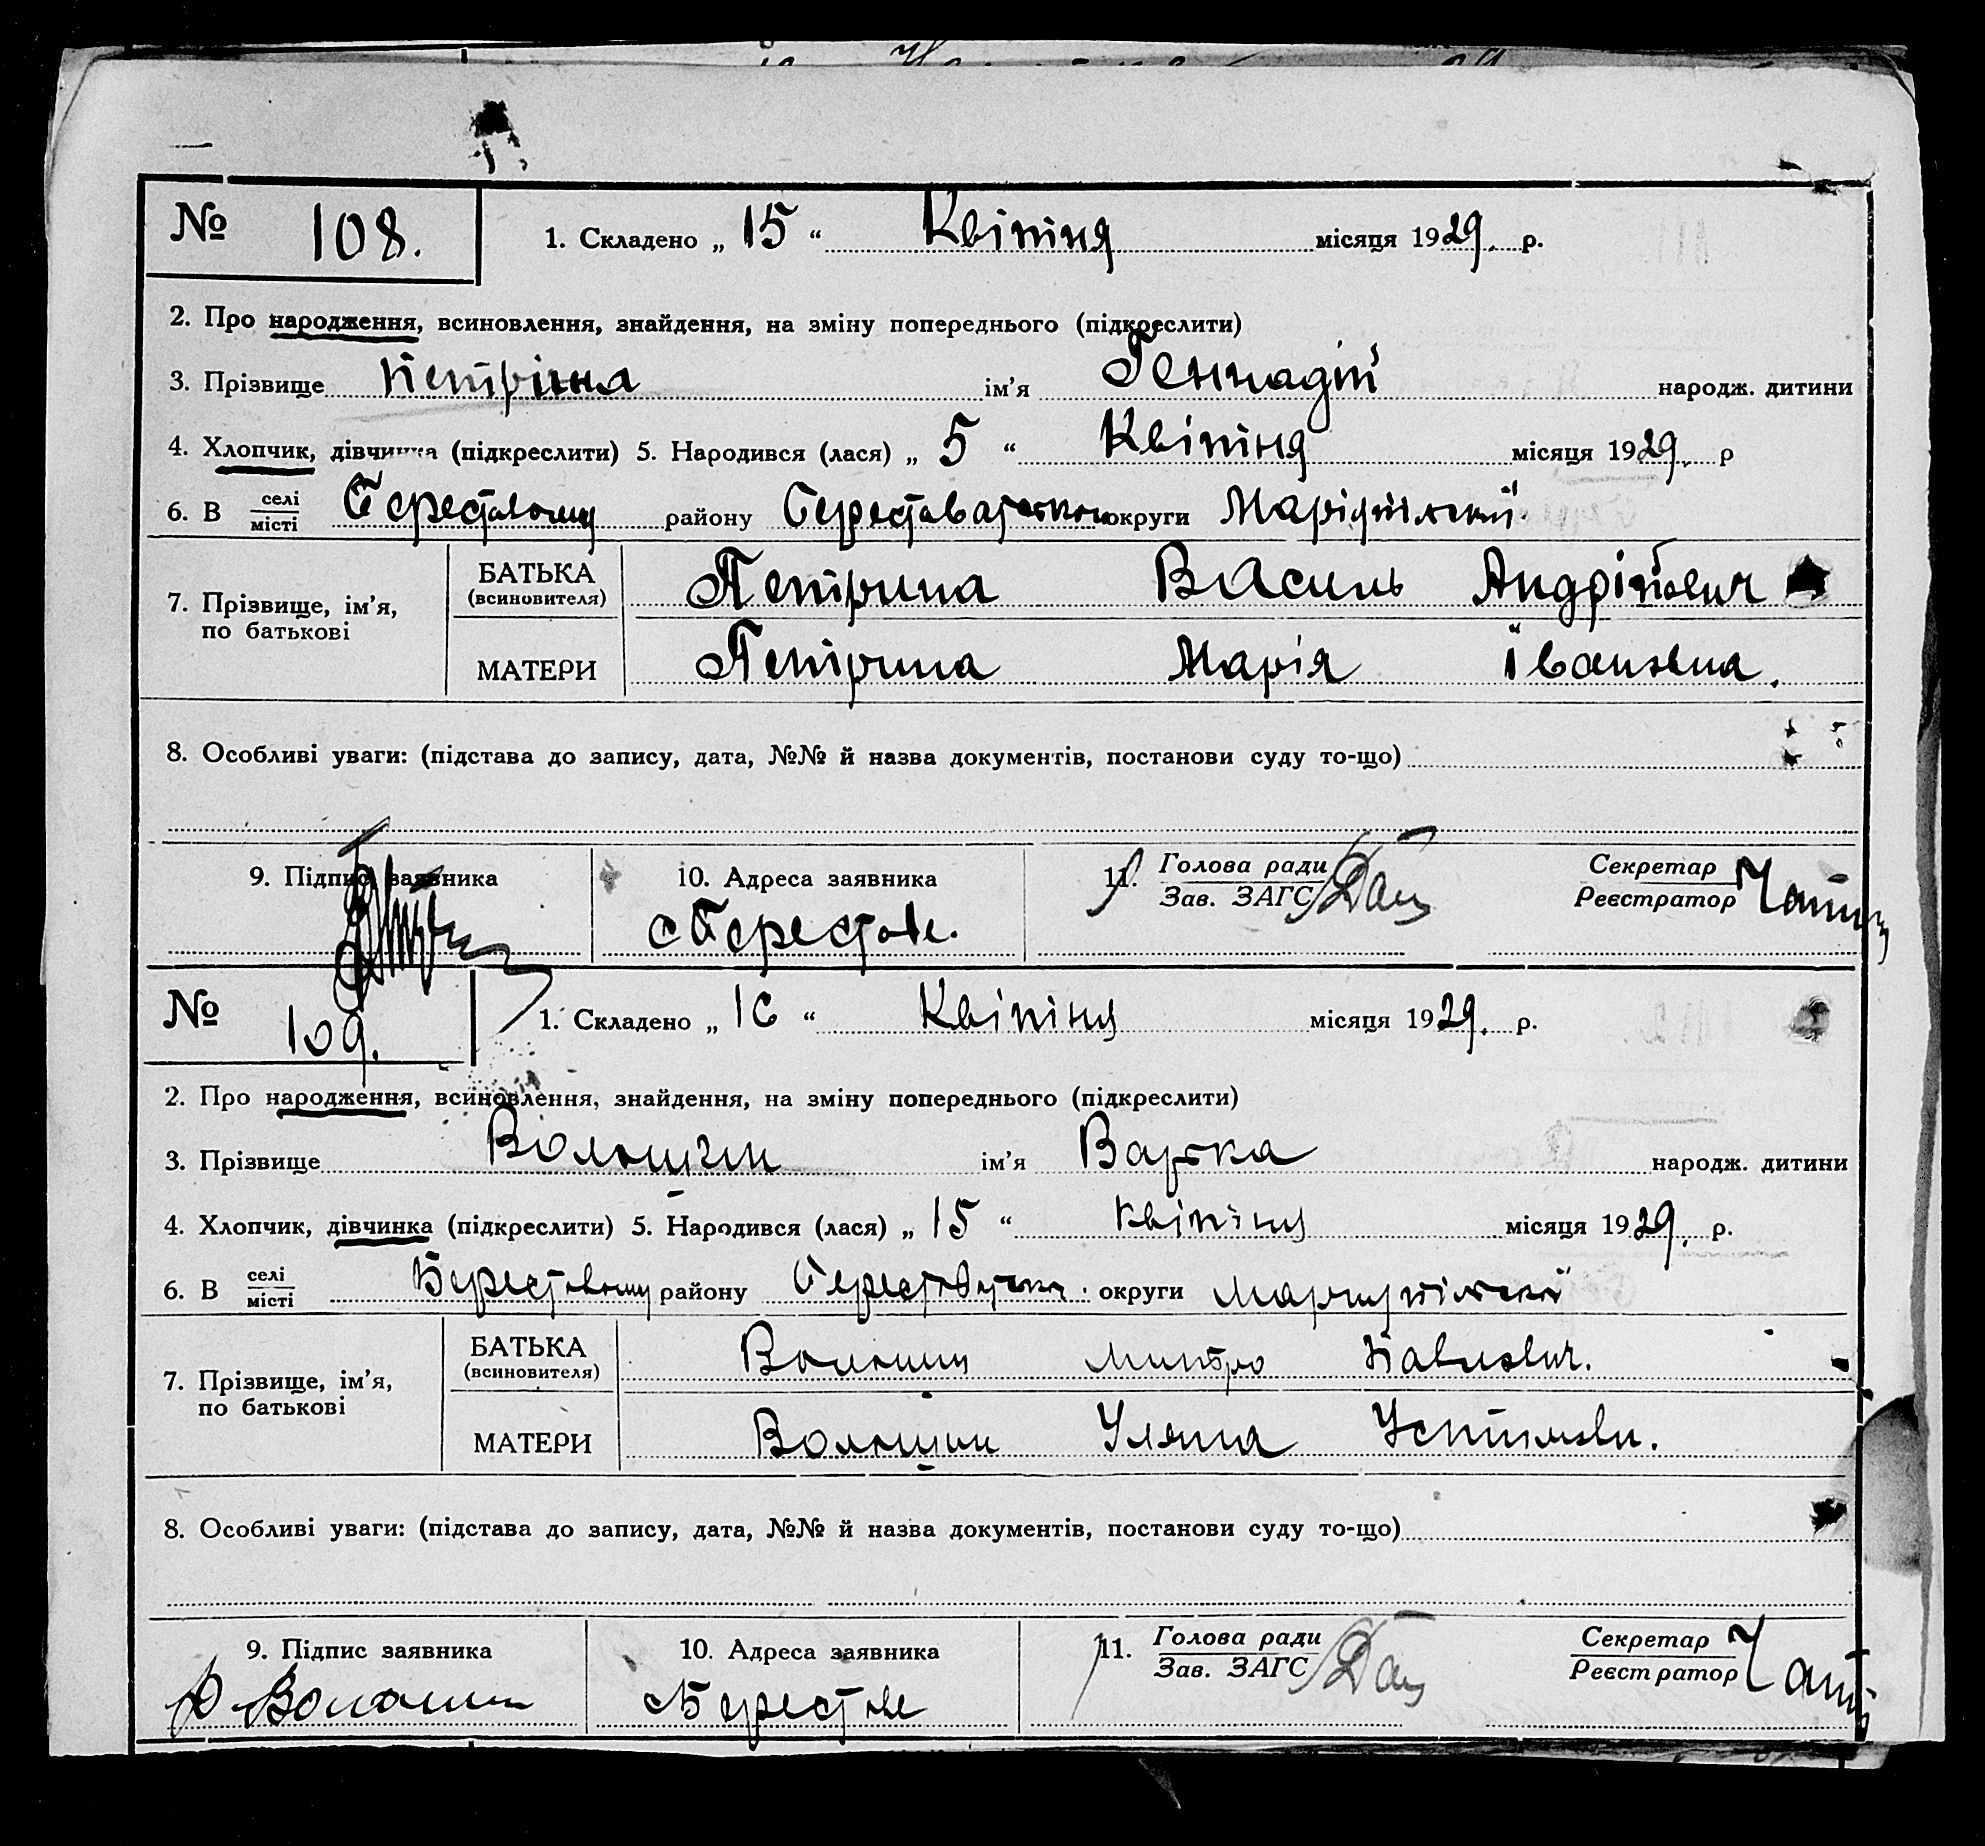 № 108. 1. Складено „ 15 “ Квітня місяця 1929. р.
2. Про народження, всиновлення, знайдення, на зміну попереднього (підкреслити)
3. Прізвище Петріна ім’я Геннадій народж. дитини
4. Хлопчик, дівчинка (підкреслити) 5. Народився (лася) „ 5 “ Квітня місяця 1929. р
6. В селі місті Берестовому району Берестоватського округи Маріупільскій
7. Прізвище, ім’я, по батькові
БАТЬКА (всиновителя) Петрина Василь Андрійович
МАТЕРИ Петрина Марія Івановна.
8. Особливі уваги: (підстава до запису, дата, №№ й назва документів, постанови суду то-що)
9. Підпис заявника 10. Адреса заявника 11. Голова ради Зав. ЗАГС Секретар Реєстратор
с Берестове.
№ 109. 1. Складено „ 16 “ Квітня місяця 1929. р.
2. Про народження, всиновлення, знайдення, на зміну попереднього (підкреслити)
3. Прізвище Волошин ім’я Варка народж. дитини
4. Хлопчик, дівчинка (підкреслити) 5. Народився (лася) „ 15 “ квітня місяця 1929. р.
6. В селі місті Берестовому району Берестоватсько. округи Мариупільскій
7. Прізвище, ім’я, по батькові
БАТЬКА (всиновителя) Волошин Митро Павлович.
МАТЕРИ Волошин Уляна Устимовн.
8. Особливі уваги: (підстава до запису, дата, №№ й назва документів, постанови суду то-що)
9. Підпис заявника 10. Адреса заявника 11. Голова ради Зав. ЗАГС Секретар Реєстратор
Волошин с Берестове